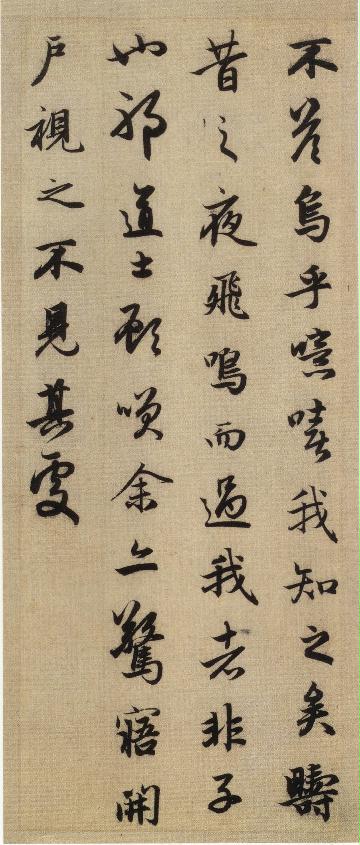 不荅烏乎噫嘻我知之矣疇
昔之夜飛鳴而過我者非子
也邪道士顧咲余亦驚寤開
戶視之不見其處